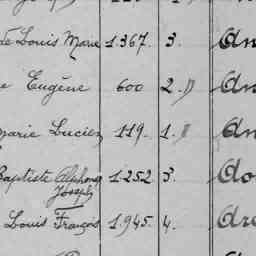 de Louis Marie 1.367. 3. An
e Eugène 600 2. An
Marie Lucien 119. 1. An
Baptiste Alphonse 1.252. 3. Do
Joseph
Louis François 1.945. 4. Dre